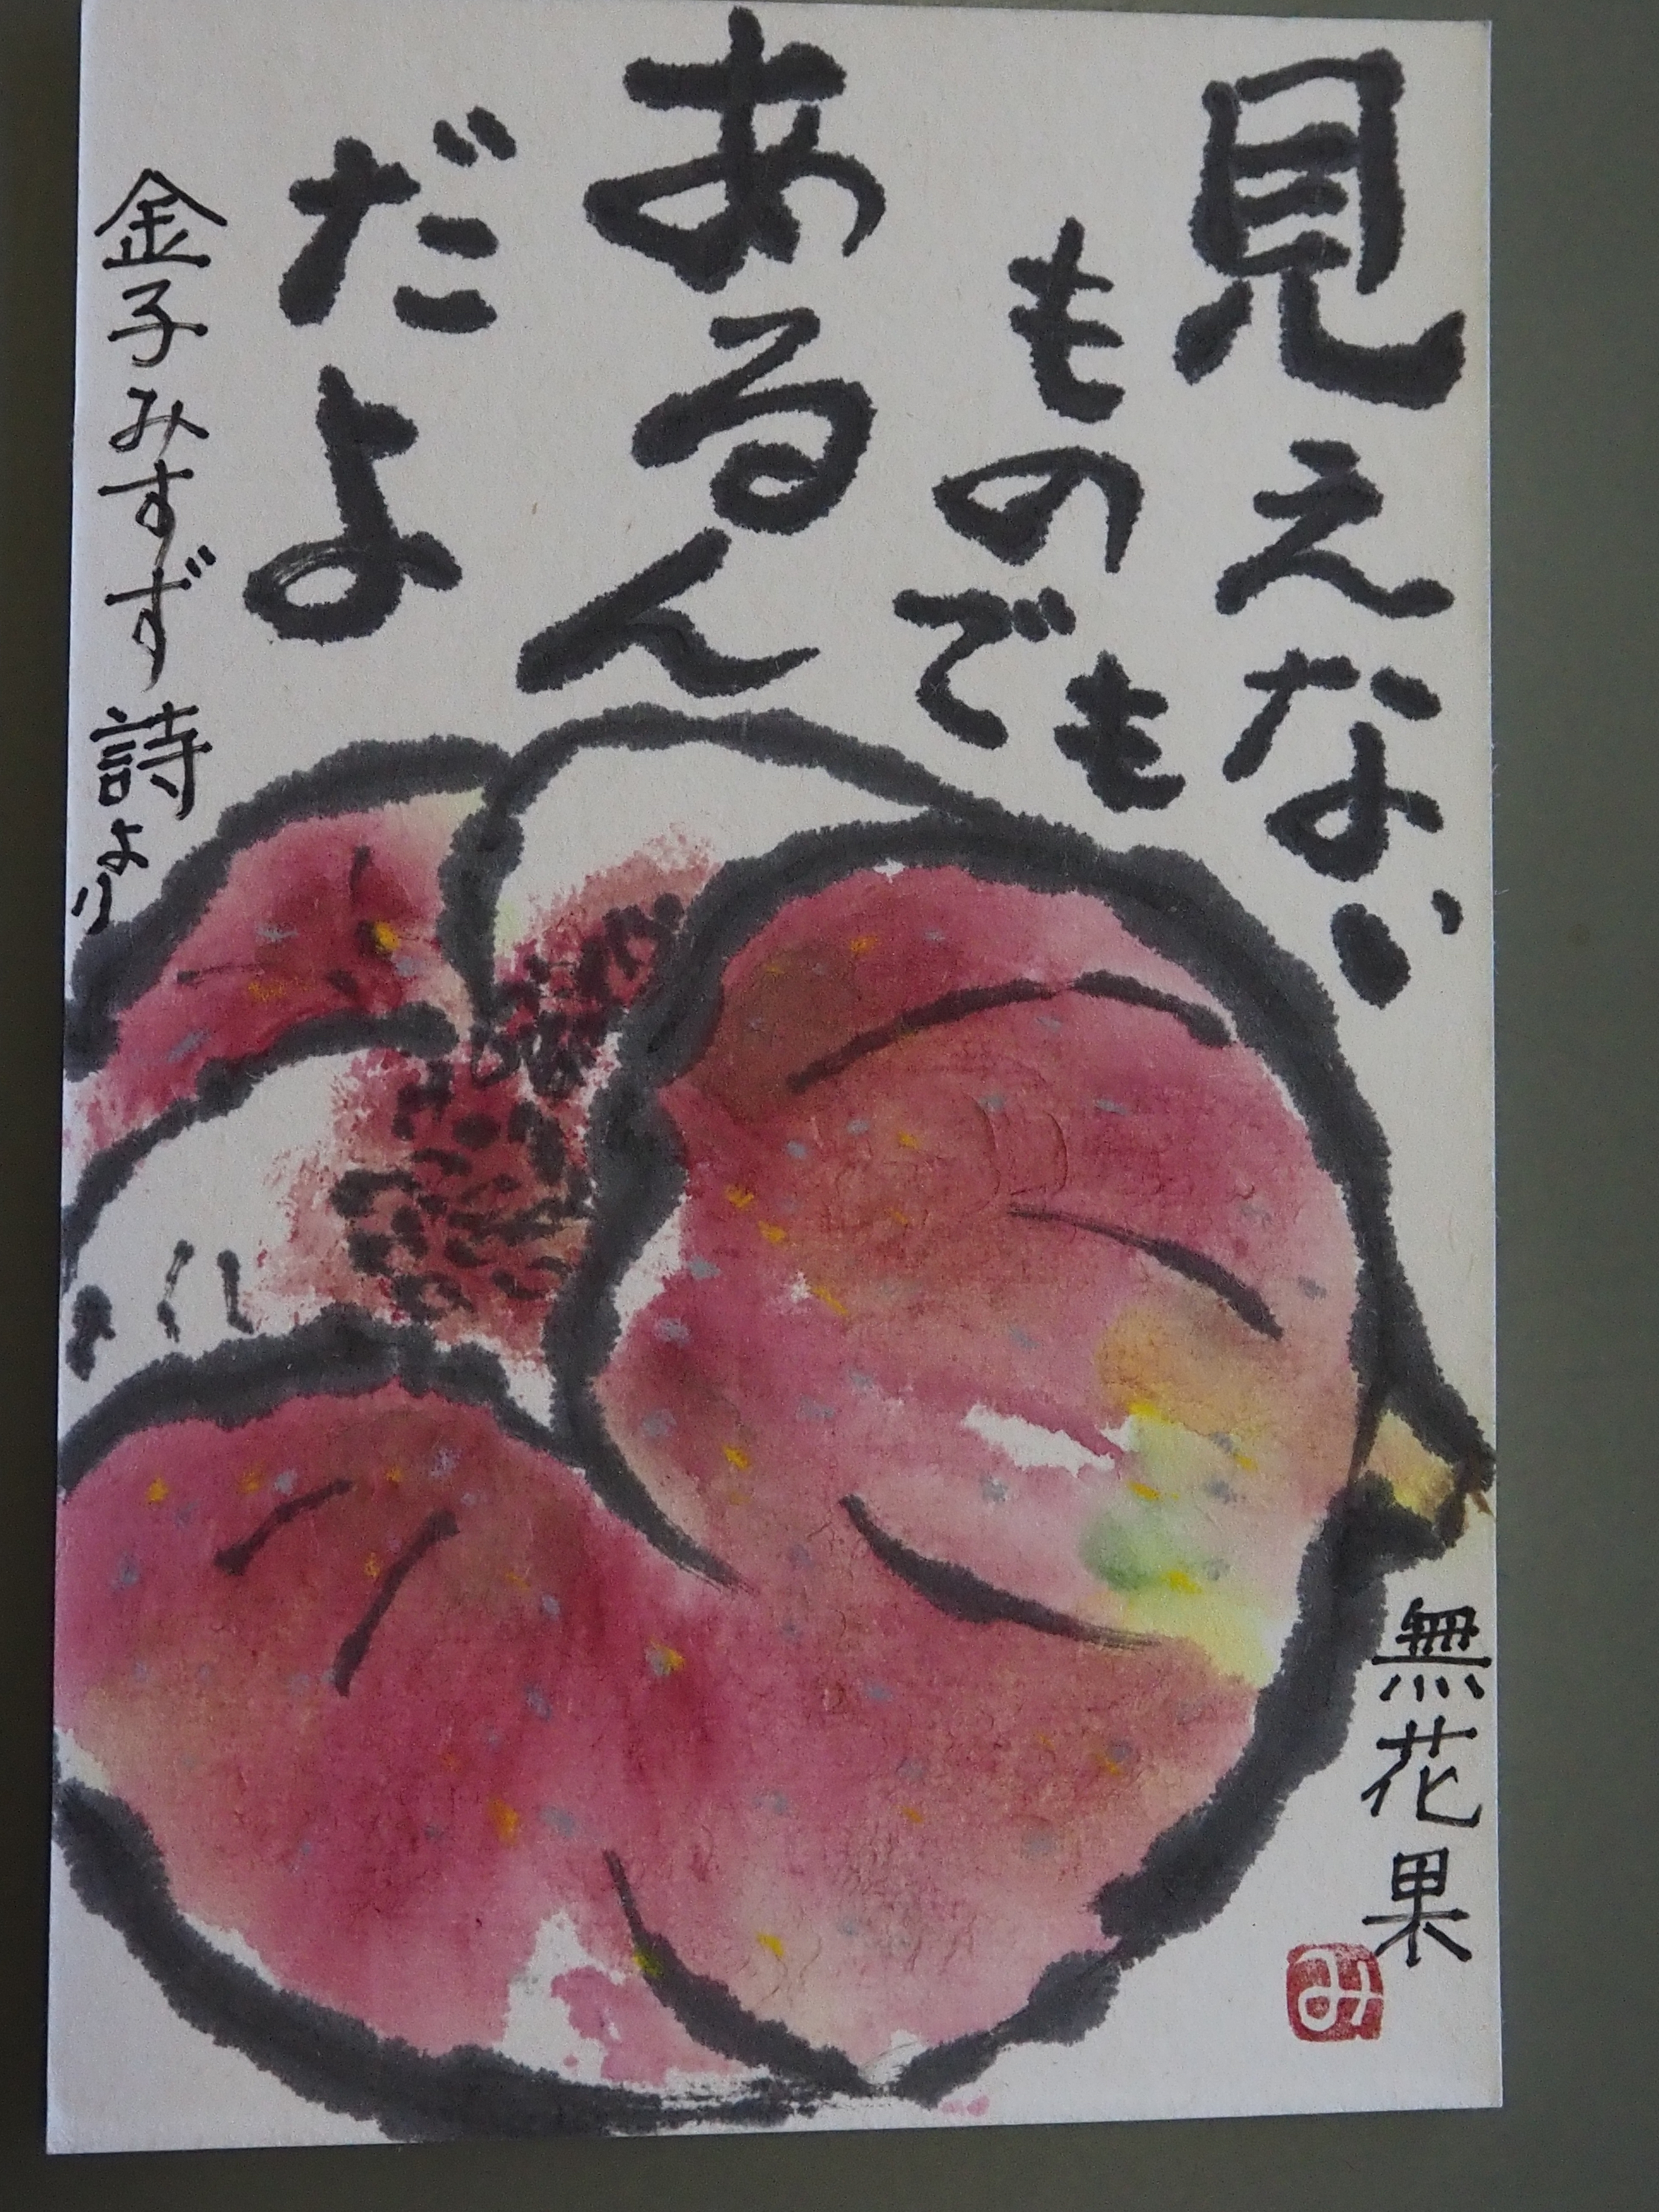 見えない
ものでも
あるん
だよ
金子みすず詩より
無花果
み